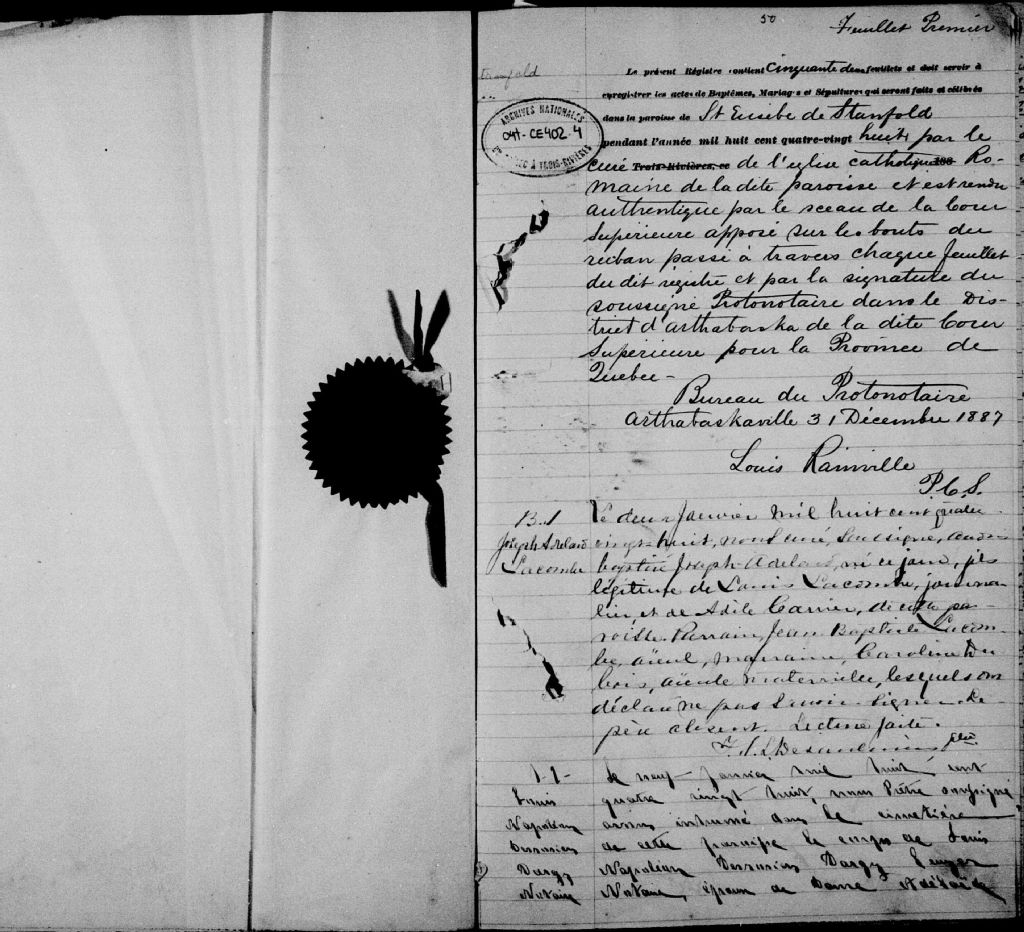 50
Feuillet Premier
Le présent Régistre contient Cinquante deux feuillets et doit servir à
enregistrer les actes de Baptêmes, Mariages et Sépultures qui seront faits et célébrés
dans la paroisse de St Eusèbe de Stanfold
pendant l'année mil huit cent quatre-vingt huit par le
curé Trois-Rivières, ce de l'eglise catholique 188 Ro-
maine de la dite paroisse et est rendu
authentique par le sceau de la Cour
Supérieure apposé sur les bouts du
ruban passé à travers chaque feuillet
du dit régistre et par la signature du
soussigné Protonotaire dans le Dis-
trict d'arthabaska de la dite Cour
Supérieure pour la Province de
Quebec-
Bureau du Protonotaire
Arthabaskaville 31 Décembre 1887
Louis Rainville
P.C.S.
Stanfold
ARCHIVES NATIONALES
04T-CE402-4
QUÉBEC À TROIS-RIVIÈRES
B.1
Joseph Adelard
Lacombe
Le deux Janvier mil huit cent quatre-
vingt-huit, nous curé, soussigné, avons
baptisé Joseph-Adelard, né ce jour, fils
légitime de Louis Lacombe, journa-
lier, et de Adèle Carrier, de cette pa-
roisse. Parrain, Jean Baptiste Lacom-
be, aïeul, marraine, Caroline Du
bois, aïeule maternelle, lesquels ont
déclaré ne pas savoir signer. Le
père absent. Lecture faite.
Desaulniers ptre
Louis
Napoléon
Desrosiers
Dargy
Notaire
Le neuf Janvier mil huit cent
quatre vingt huit, nous Prêtre soussigné
avons inhumé dans le cimetière
de cette paroisse le corps de Louis
Napoléon Desrosiers Dargy
Notaire, époux de Dame